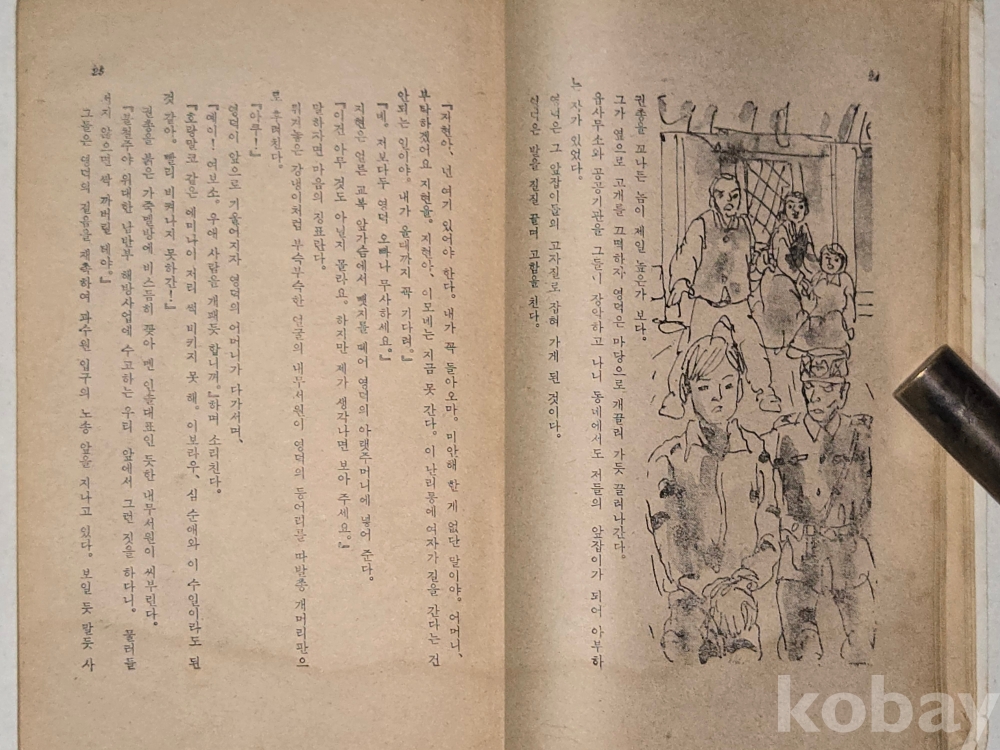 24
권총을 꼬나든 놈이 제일 높은가 보다。
그가 옆으로 고개를 끄떡하자 영덕은 마당으로 개끌려 가듯 끌려나간다。
읍사무소와 공공기관을 그들이 장악하고 나니 동네에서도 저들의 앞잡이가 되어 아부하
는 자가 있었다。
영덕은 그 앞잡이들의 고자질로 잡혀 가게 된 것이다。
영덕은 발을 질질 끌며 고함을 친다。
25
『지현아, 넌 여기 있어야 한다。 내가 꼭 돌아오마。 미안해 한 게 없단 말이야。 어머니,
부탁하겠어요 지현을。 지현아, 이모네는 지금 못 간다。 이 난리통에 여자가 길을 간다는 건
안되는 일이야。 내가 올때까지 꼭 기다려。』
『네。 저보다두 영덕 오빠나 무사하세요。』
지현은 얼른 교복 앞가슴에서 뺏지를 떼어 영덕의 아랫주머니에 넣어 준다。
『이건 아무 것도 아닐지 몰라요。 하지만 제가 생각나면 보아 주세요。』
말하자면 마음의 징표란다。
튀겨놓은 강냉이처럼 부숙부숙한 얼굴의 내무서원이 영덕의 등어리를 따발총 개머리판으
로 후려친다。
『아쿠!』
영덕이 앞으로 기울어지자 영덕의 어머니가 다가서며、
『예이! 여보소。 우애 사람을 개패듯 합니껴。』하며 소리친다。
『호랑말코 같은 에미나이 저리 썩 비키지 못 해。 이보라우, 심 순애와 이 수일이라도 된
것 같아。 빨리 비켜나지 못하간!』
권총을 붉은 가죽멜방에 비스듬히 꽂아 멘 인솔대표인 듯한 내무서원이 씨부린다。
『불철주야 위대한 남반부 해방사업에 수고하는 우리 앞에서 그런 짓을 하다니。 물러들
서지 않으면 싹 까버릴 테야。』
그들은 영덕의 걸음을 재촉하여 과수원 입구의 노송 앞을 지나고 있다。 보일 듯 말듯 사
kobay